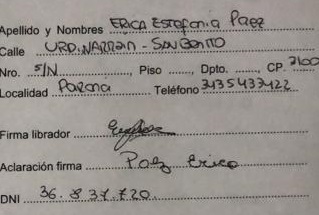 Apellido y Nombres ERICA Estefania Paez
Calle URD. NARRAIN - SAN BENITO
Nro. S/N Piso Dpto. CP. 3100
Localidad Parana Teléfono 3435433422
Firma librador
Aclaración firma Paez Erica
DNI 36.837.720